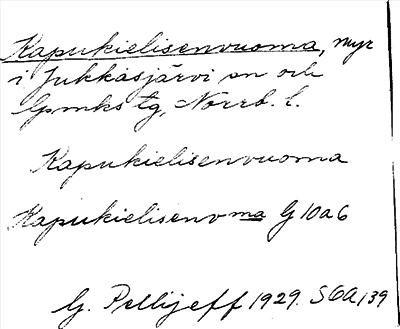 Kapukielisenvuoma, myr
i Jukkasjärvi sn och
Gpmks tg, Norrb. l.
Kapukielisenvuoma
Kapukielisenvma G 10a6
G. Pellijeff 1929. SGA 139